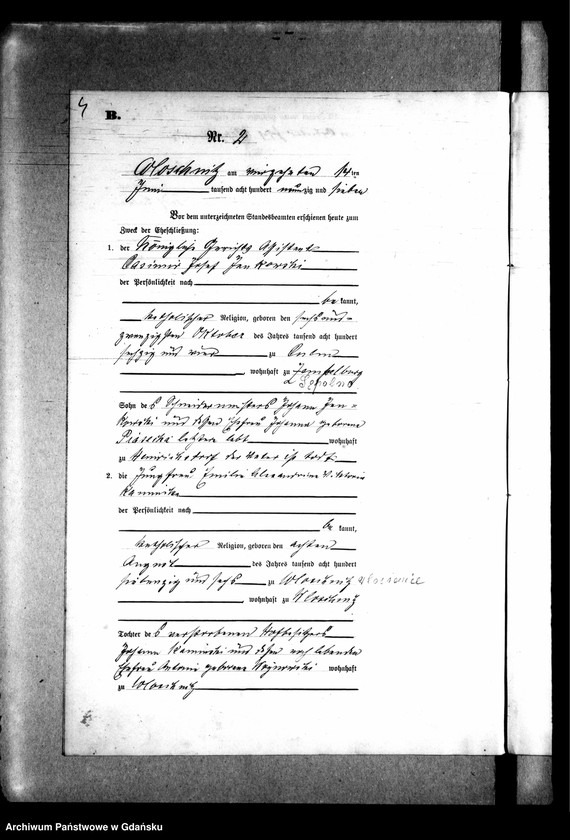 4
B.
Nr. 2
am vierzehnten ten
Juni tausend acht hundert neunzig und sieben
Vor dem unterzeichneten Standesbeamten erschienen heute zum
Zweck der Eheschließung:
1. der Königliche Gerichts Assistent
Casimir Josef Jankowski
der Persönlichkeit nach
be kannt,
katholischer Religion, geboren den sechsund-
zwanzigsten Oktober des Jahres tausend acht hundert
sechzig und vier zu
, wohnhaft zu Zempelburg
Sępolno
Sohn des Schneidermeisters Johann Jan-
kowski und dessen Ehefrau Johanna geborene
letztere lebt wohnhaft
zu der Vater ist todt.
2. die Jungfrau Emilie Alexandrine Viktoria
Kaminska
der Persönlichkeit nach
be kannt,
katholischer Religion, geboren den achten
August des Jahres tausend acht hundert
siebenzig und sechs zu
wohnhaft zu
Tochter des verstorbenen Hofbesitzers
Johann Kaminski und dessen noch lebenden
Ehefrau Antonie geborene wohnhaft
zu
Archiwum Państwowe w Gdańsku